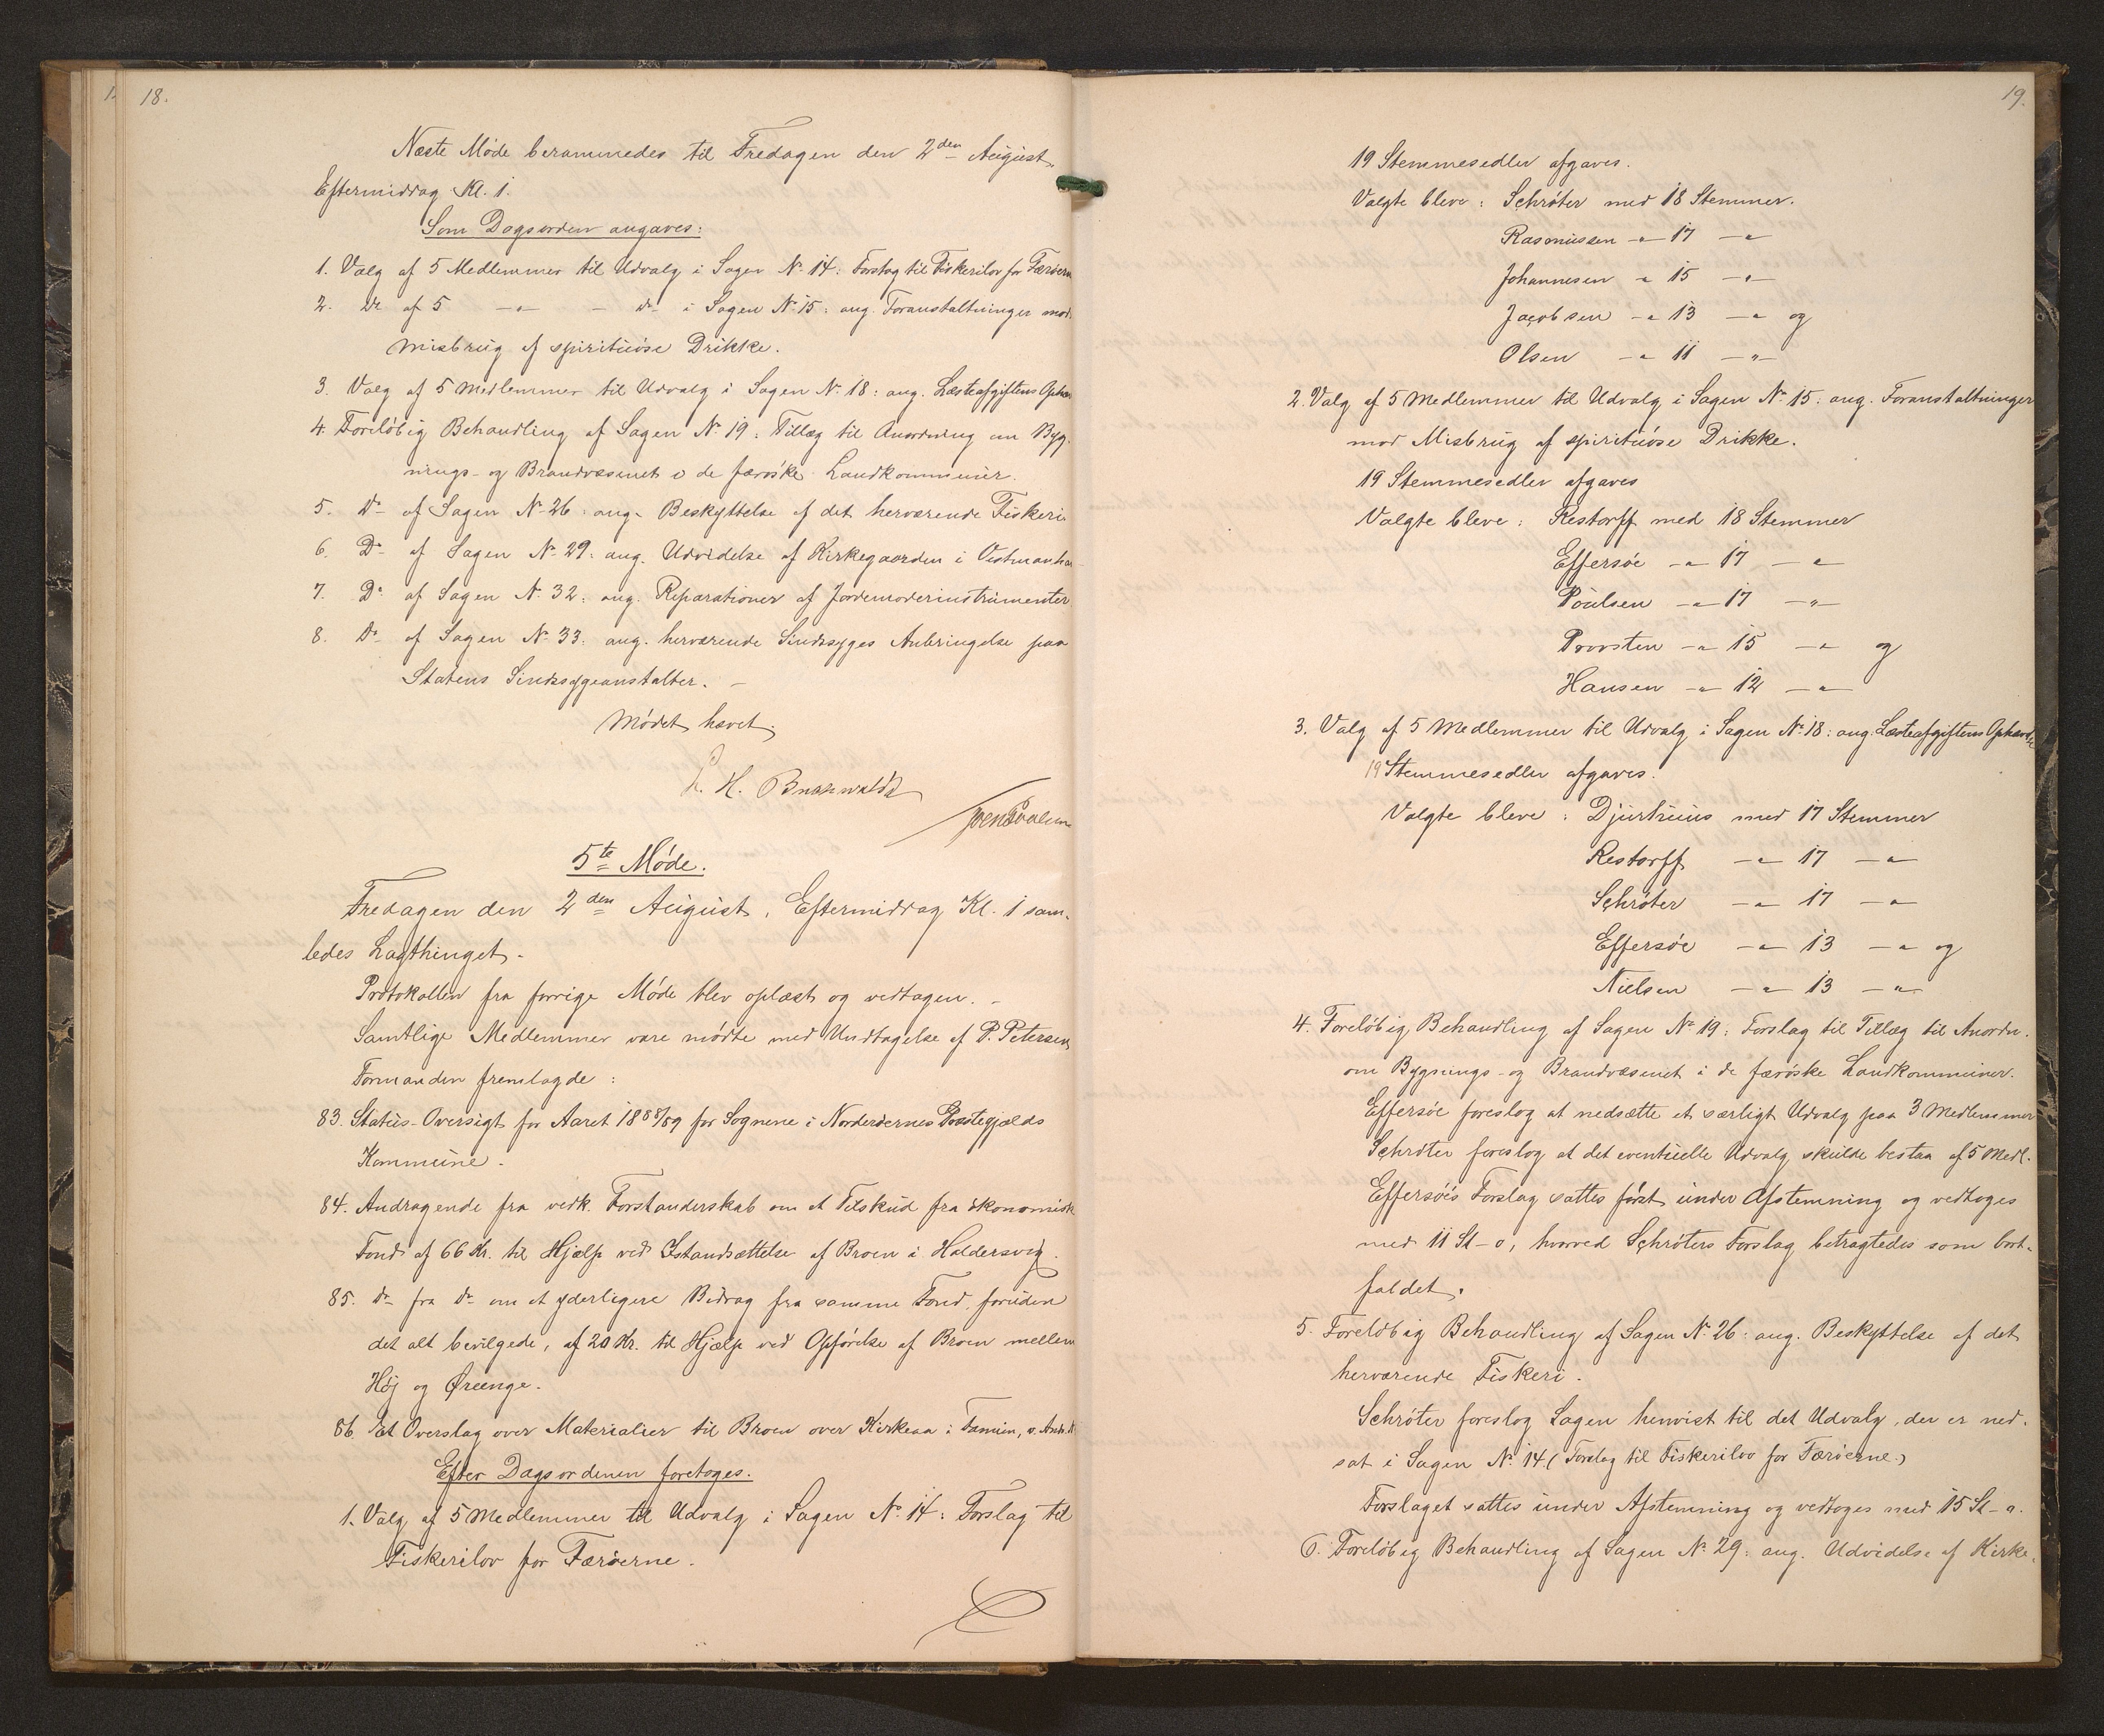 18.
Næste Møde berammedes til Fredagen den 2den August
Eftermiddag Kl. 1.
Som Dagsorden angaves:
1. Valg af 5 Medlemmer til Udvalg i Sagen No 14: Forslag til Fiskerilov for Færøern
2. Do af 5 —"— — do i Sagen No 15: ang. Foranstaltninger mod
Misbrug af spirituøse Drikke.
3. Valg af 5 Medlemmer til Udvalg i Sagen No 18: ang. Læsteafgiftens Ophæv
4. Foreløbig Behandling af Sagen No 19: Tillæg til Anordning om Byg-
nings- og Brandvæsenet i de færøske Landkommuner.
5. Do af Sagen No 26: ang. Beskyttelse af det herværende Fiskeri
6. Do af Sagen No 29: ang. Udvidelse af Kirkegaarden i Vestmanha
7. Do af Sagen No 32: ang. Reparationer af Jordemoderinstrumenter
8. Do af Sagen No 33: ang. herværende Sindssyges Anbringelse paa
Statens Sindssygeanstalter. —
Mødet hævet.
H.
5te Møde.
Fredagen den 2den August, Eftermiddag Kl. 1 sam-
ledes Lagthinget.
Protokollen fra forrige Møde blev oplæst og vedtagen. —
Samtlige Medlemmer vare mødte med Undtagelse af P. Petersen
Formanden fremlagde:
83. Status-Oversigt for Aaret 1888/89 for Sognene i Norderøernes Præstegjælds
Kommune.
84. Andragende fra vedk. Forstanderskab om et Tilskud fra økonomisk
Fond af 66 Kr. til Hjælp ved Istandsættelse af Broen i Haldersvig.
85. do fra do om et yderligere Bidrag fra samme Fond, foruden
det alt bevilgede, af 20 Kr. til Hjælp ved Opførelse af Broen mellem
Høj og Ørenge.
86. Et Overslag over Materialier til Broen over Kirkeaa i Famien, v.
Efter Dagsordenen foretoges.
1. Valg af 5 Medlemmer til Udvalg i Sagen No 14: Forslag til
Fiskerilov for Færøerne.
19.
19 Stemmesedler afgaves.
Valgte bleve: Schrøter med 18 Stemmer.
Rasmussen —"— 17 —"—
Johannesen —"— 15 —"—
Jacobsen —"— 13 —"— og
Olsen —"— 11 —"—
2. Valg af 5 Medlemmer til Udvalg i Sagen No 15: ang. Foranstaltninger
mod Misbrug af spirituøse Drikke.
19 Stemmesedler afgaves
Valgte bleve: Restorff med 18 Stemmer
Effersøe —"— 17 —"—
Poulsen —"— 17 —"—
Provsten —"— 15 —"— og
Hansen —"— 12 —"—
3. Valg af 5 Medlemmer til Udvalg i Sagen No 18: ang. Læsteafgiftens Ophævelse
19 Stemmesedler afgaves.
Valgte bleve: Djurhuus med 17 Stemmer
Restorff —"— 17 —"—
Schrøter —"— 17 —"—
Effersøe —"— 13 —"— og
Nielsen —"— 13 —"—
4. Foreløbig Behandling af Sagen No 19: Forslag til Tillæg til Anordn.
om Bygnings- og Brandvæsenet i de færøske Landkommuner.
Effersøe foreslog at nedsætte et særligt Udvalg paa 3 Medlemmer
Schrøter foreslog at det eventuelle Udvalg skulde bestaa af 5 Medl.
Effersøes Forslag sattes først under Afstemning og vedtoges
med 11 St - 0, hvorved Schrøters Forslag betragtedes som bort-
faldet.
5. Foreløbig Behandling af Sagen No 26: ang. Beskyttelse af det
herværende Fiskeri.
Schrøter foreslog Sagen henvist til det Udvalg, der er ned-
sat i Sagen No 14. (Forslag til Fiskerilov for Færøerne.)
Forslaget sattes under Afstemning og vedtoges med 15 St - 0.
6. Foreløbig Behandling af Sagen No 29: ang. Udvidelse af Kirke-